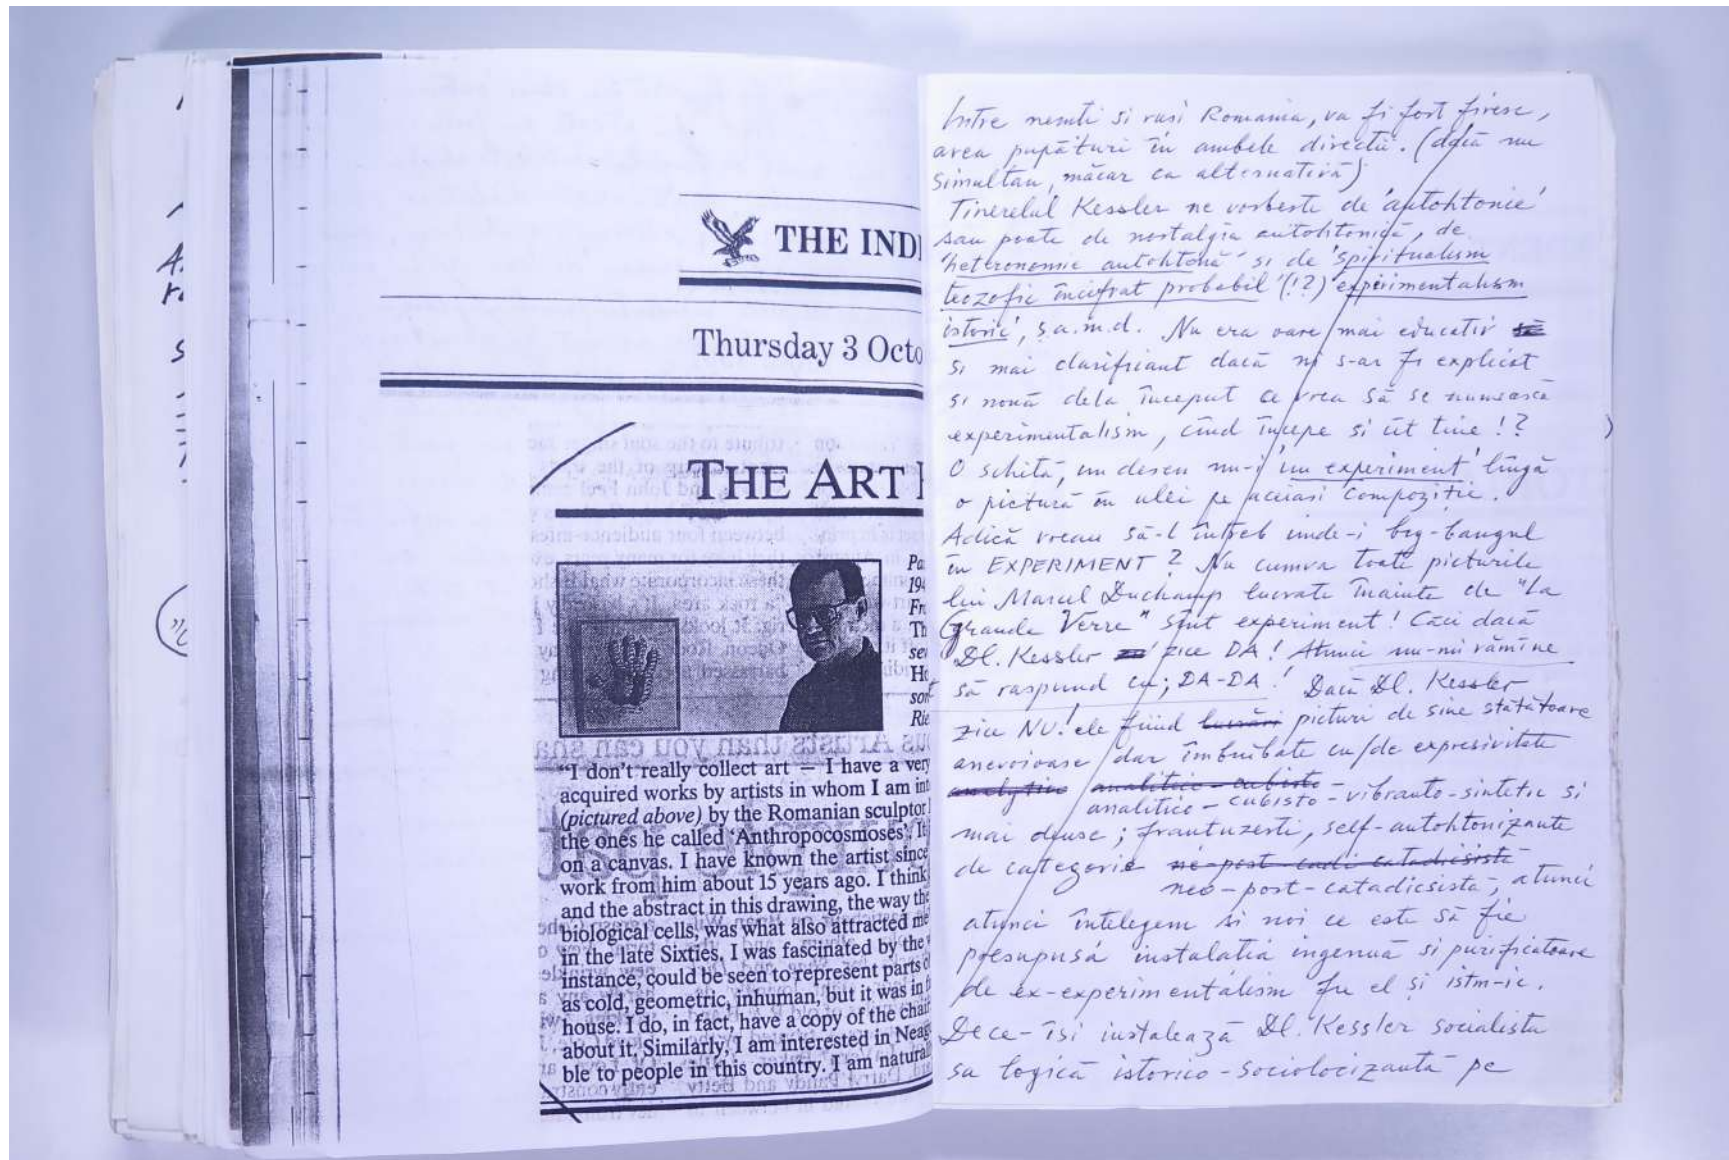 THE IND
Thursday 3 Octo
THE ART
Pa
194
Fr
Th
se
Ho
son
Rie
“I don't really collect art — I have a very
acquired works by artists in whom I am int
(pictured above) by the Romanian sculptor
the ones he called ‘Anthropocosmoses’. It
on a canvas. I have known the artist since
work from him about 15 years ago. I think
and the abstract in this drawing, the way the
biological cells, was what also attracted me
in the late Sixties. I was fascinated by the
instance, could be seen to represent parts o
as cold, geometric, inhuman, but it was in f
house. I do, in fact, have a copy of the chair
about it. Similarly, I am interested in Neag
ble to people in this country. I am natural
Intre nemti si rusi Romania, va fi fost firesc,
avea pupături în ambele directii. (dacă nu
simultan, măcar ca alternativă)
Tinerelul Kessler ne vorbeste de 'autohtonie'
sau poate de nostalgia autohtonică, de
'heteronomie autohtonă' si de 'spiritualism
teozofic încifrat probabil' (!?) 'experimentalism
istoric', s.a.m.d. Nu era oare mai educativ să
si mai clarifiant dacă ni s-ar fi explicat
si nouă dela început ce vrea să se numească
experimentalism, cînd începe si cît tine!?
O schită, un desen nu-i 'un experiment' lîngă
o pictură în ulei pe aceiasi compozitie.
Adică vreau să-l întreb unde-i big-bangul
în EXPERIMENT? Nu cumva toate picturile
lui Marcel Duchamp lucrate înainte de "La
Grande Verre" sînt experiment! Căci dacă
Dl. Kessler zice DA! Atunci nu-mi rămîne
să raspund cu; DA-DA! Dacă Dl. Kessler
zice NU! ele fiind lucrări picturi de sine stătătoare
anevoioase dar îmbuibate cu/de expresivitate
analitico-cubisto
analitico-cubisto-vibranto-sintetic si
mai dense; frantuzesti, self-autohtonizante
de categorie
neo-post-catadicsistă, atunci
atunci întelegem si noi ce este să fie
presupusă instalatia ingenuă si purificatoare
de ex-experimentalism fie el si istm-ic.
Dece-îsi instalează Dl. Kessler socialista
sa logică istorico-sociolocizantă pe